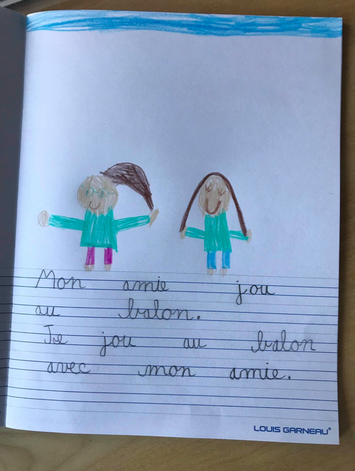 Mon amie jou
au balon.
Je jou au balon
avec mon amie.
LOUIS GARNEAU